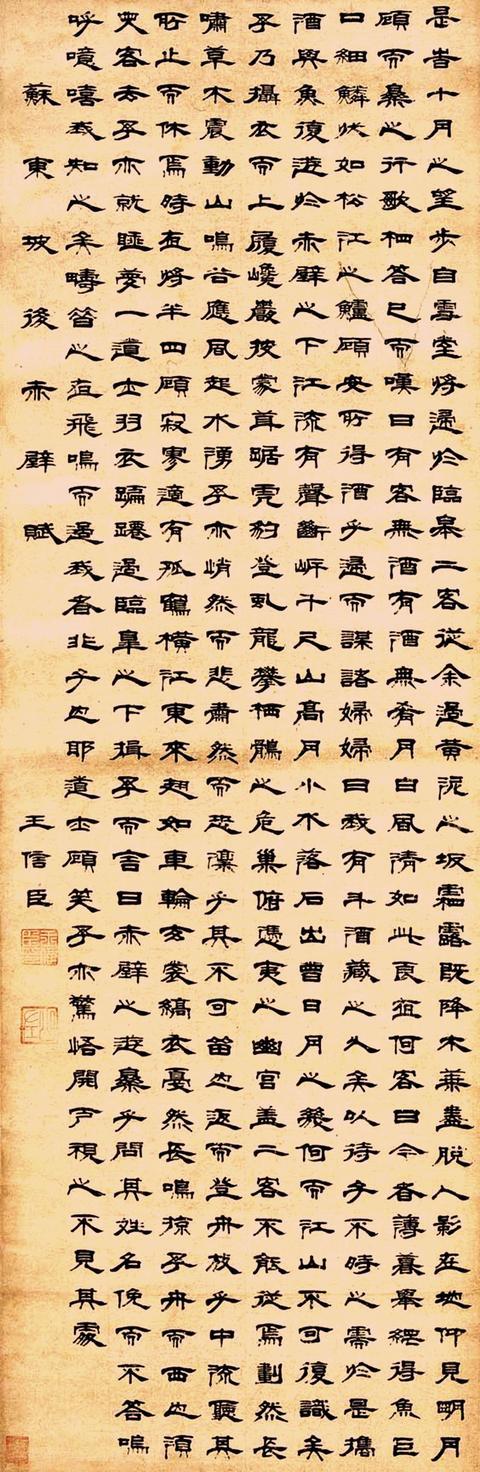 是旹十月之望步自雪堂將歸於臨皋二客從余過黃泥之坂霜露既降木葉盡脫人影在地仰見明月
顧而樂之行歌相答已而嘆曰有客無酒有酒無肴月白風清如此良夜何客曰今者薄暮舉網得魚巨
口細鱗狀如松江之鱸顧安所得酒乎歸而謀諸婦婦曰我有斗酒藏之久矣以待子不時之需於是攜
酒與魚復遊於赤壁之下江流有聲斷岸千尺山高月小水落石出曾日月之幾何而江山不可復識矣
予乃攝衣而上履巉巖披蒙茸踞虎豹登虬龍攀栖鶻之危巢俯馮夷之幽宮蓋二客不能從焉劃然長
嘯草木震動山鳴谷應風起水湧予亦悄然而悲肅然而恐凜乎其不可留也返而登舟放乎中流聽其
所止而休焉時夜將半四顧寂寥適有孤鶴橫江東來翅如車輪玄裳縞衣戛然長鳴掠予舟而西也須
臾客去予亦就睡夢一道士羽衣蹁躚過臨皋之下揖予而言曰赤壁之遊樂乎問其姓名俛而不答嗚
呼噫嘻我知之矣疇昔之夜飛鳴而過我者非子也耶道士顧笑予亦驚悟開戶視之不見其處
蘇東坡後赤壁賦 王信臣